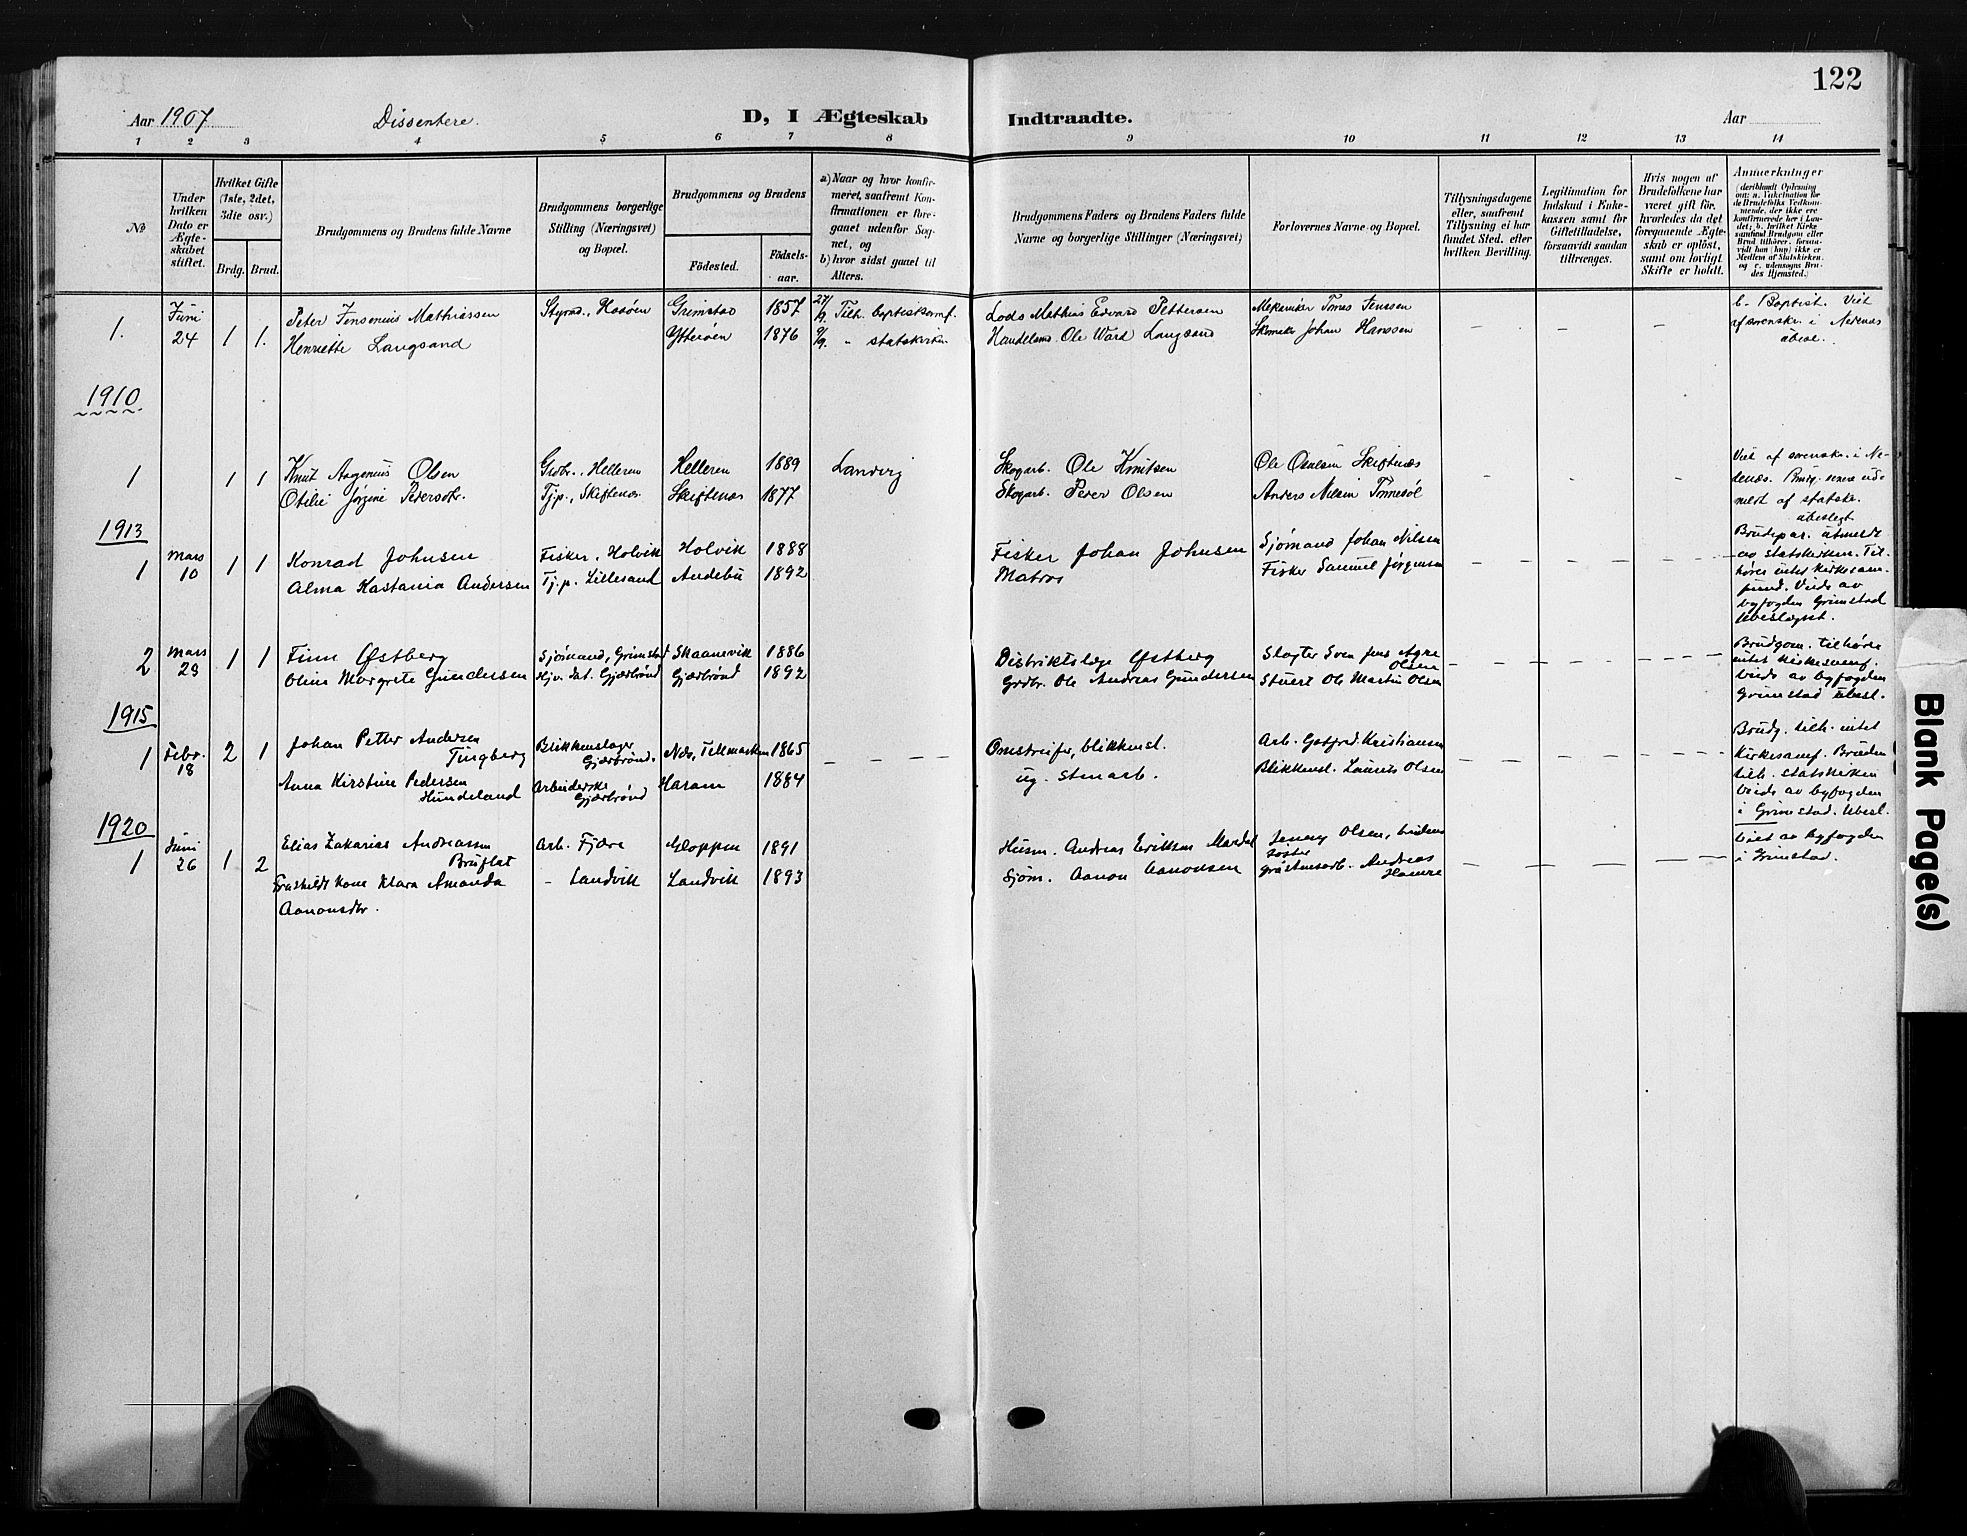 122
Aar 1907 Dissentere. D, I Ægteskab Indtraadte. Aar
1 2 3 4 5 6 7 8 9 10 11 12 13 14
No
Under hvilken Dato er Ægteskabet stiftet.
Hvilket Gifte (1ste, 2det, 3die osv.)
Brdg. Brud.
Brudgommens og Brudens fulde Navne
Brudgommens borgerlige Stilling (Næringsvei) og Bopæl.
Brudgommens og Brudens
Fødested.
Fødselsaar.
a) Naar og hvor konfirmeret, saafremt Konfirmationen er foregaaet udenfor Sognet, og
b) hvor sidst gaaet til Alters.
Brudgommens Faders og Brudens Faders fulde Navne og borgerlige Stillinger (Næringsvei)
Forlovernes Navne og Bopæl.
Tillysningsdagene eller, saafremt Tillysning ei har fundet Sted, efter hvilken Bevilling.
Legitimation for Indskud i Enkekassen samt for Giftetilladelse, forsaavidt saadan tiltrænges.
Hvis nogen af Brudefolkene har været gift før, hvorledes da det foregaaende Ægteskab er opløst, samt om lovligt Skifte er holdt.
Anmerkninger
1. Juni 24 1 1.
Peter Jensenius Mathiassen Styrm., Hasøen Grimstad 1857 Tilh. baptistsamf.
Henriette Langsand Ytterøen 1876 " statskirken
Lods Mathias Edvard Pettersen Mekaniker Tønnes Jenssen
Handelsm. Ole Ward Langsand Skomaker Johan Hanssen
b. Baptist. Viet
af sorenskr. i Nedenæs
ubesl.
1910
1 1 1
Knut Aagenius Olsen Grdbr., Helleren Helleren 1889 Landvig
Otilie Jørgine Pedersdtr. Tj.p., Skiftenæs Skiftenæs 1877
Skogarb. Ole Knutsen Ole Osulsen Skiftenæs
Skogarb. Peder Olsen Anders Nilsen Tønnesøl
Viet af sorenskr. i Nedenæs.
meldt af statsk.
ubeslegt
1913
1 Mars 10 1 1
Konrad Johnsen Fisker, Holvik Holvik 1888
Alma Kastania Andersen Tj.p. Lillesand Andebu 1892
Fisker Johan Johnsen Sjømand Johan Nilsen
Matros Fisker Samuel Jørgensen
Brudepar. utmeldt
av statskirken. Tilhører
intet kirkesamfund.
Viede av
byfogden Grimstad
Ubeslægtet.
2 Mars 28 1 1
Finn Østberg Sjømand, Grimstad Skaanevik 1886
Oline Margrete Gundersen Hjv. dat. Gjærbrønd Gjærbrønd 1892
Distriktslæge Østberg Slagter Sven Jens Agre Olsen
Grdbr. Ole Andreas Gundersen Stuert Ole Martin Olsen
Brudgom. tilhører
intet kirkesamf.
Viede av byfogden
Grimstad Ubesl.
1915
1 Febr. 18 2 1
Johan Petter Andersen Tingberg Blikkenslager Gjærbrønd. Nes, Tellmarken 1865
Anna Kirstine Pedersen Hundeland Arbeiderske Gjærbrønd Haram 1884
Omstreifer, blikkensl. Arb. Gotfred Kristiansen
ug. stenarb. Blikkensl. Laurits Olsen
Brudg. tilh. intet
Kirkesamf. Bruden
tilh. statskirken
Viede av byfogden
i Grimstad. Ubesl.
1920
1 Juni 26 1 2
Elias Zakarias Andreassen Bruflat Arb. Fjære Gloppen 1891
Fraskildt kone Klara Amanda Aanonsdtr. - Landvik Landvik 1893
Husm. Andreas Eriksen Mardal Jenny Olsen, brudens søster
Sjøm. Aanon Aanonsen gråstensarb. Andreas Hamre
Viet av byfogden
i Grimstad.
Blank Page(s)